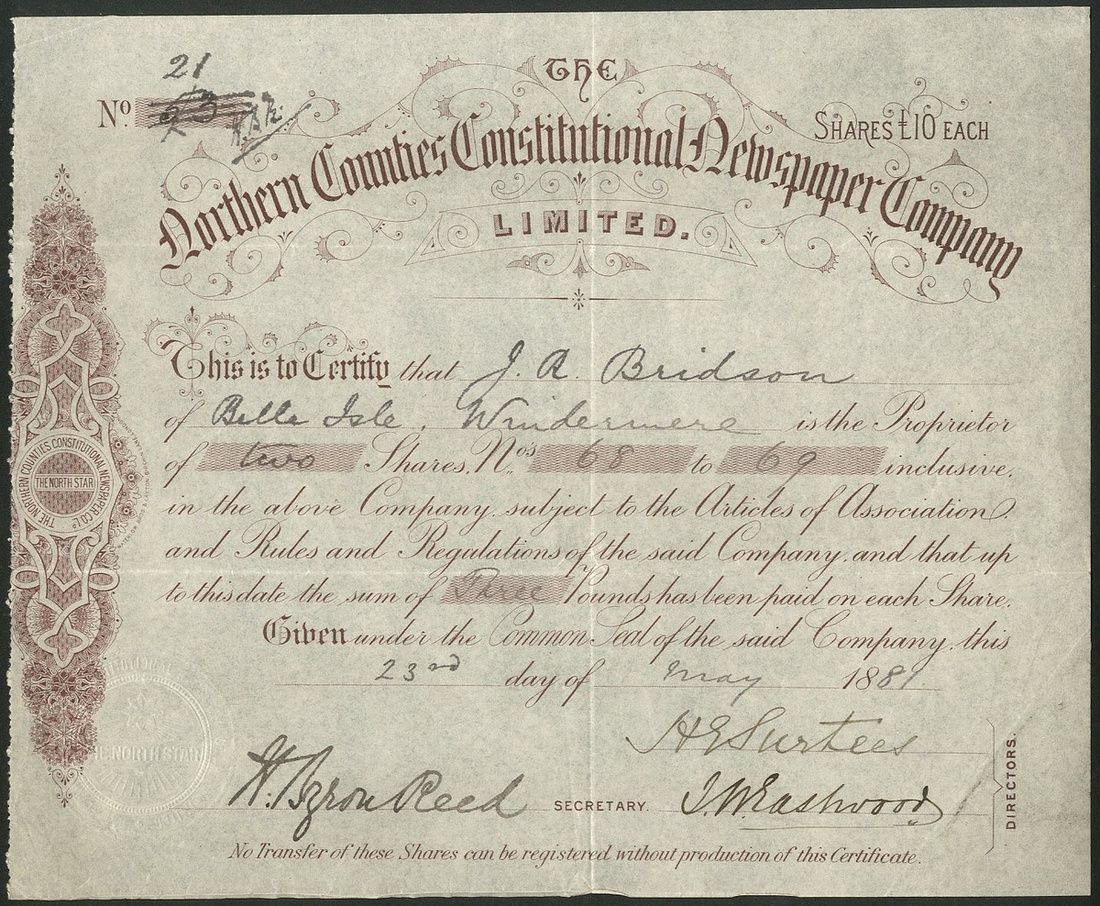 21
No. 23 H.B.R.
THE
SHARES £10 EACH
Northern Counties Constitutional Newspaper Company
LIMITED.
This is to Certify that J. A. Bridson
of Belle Isle, Windermere is the Proprietor
of two Shares, Nos. 68 to 69 inclusive,
in the above Company, subject to the Articles of Association,
and Rules and Regulations of the said Company, and that up
to this date the sum of Three Pounds has been paid on each Share.
Given under the Common Seal of the said Company, this
23rd day of May 1881
H E Surtees
H. Byron Reed SECRETARY. J. W. Eastwood
DIRECTORS.
No Transfer of these Shares can be registered without production of this Certificate.
THE NORTHERN COUNTIES CONSTITUTIONAL NEWSPAPER CO. Ld.
THE NORTH STAR
THE NORTH STAR